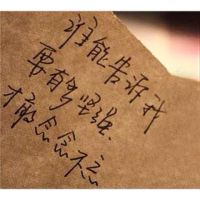 谁能告诉我
要有多坚强
才敢念念不忘